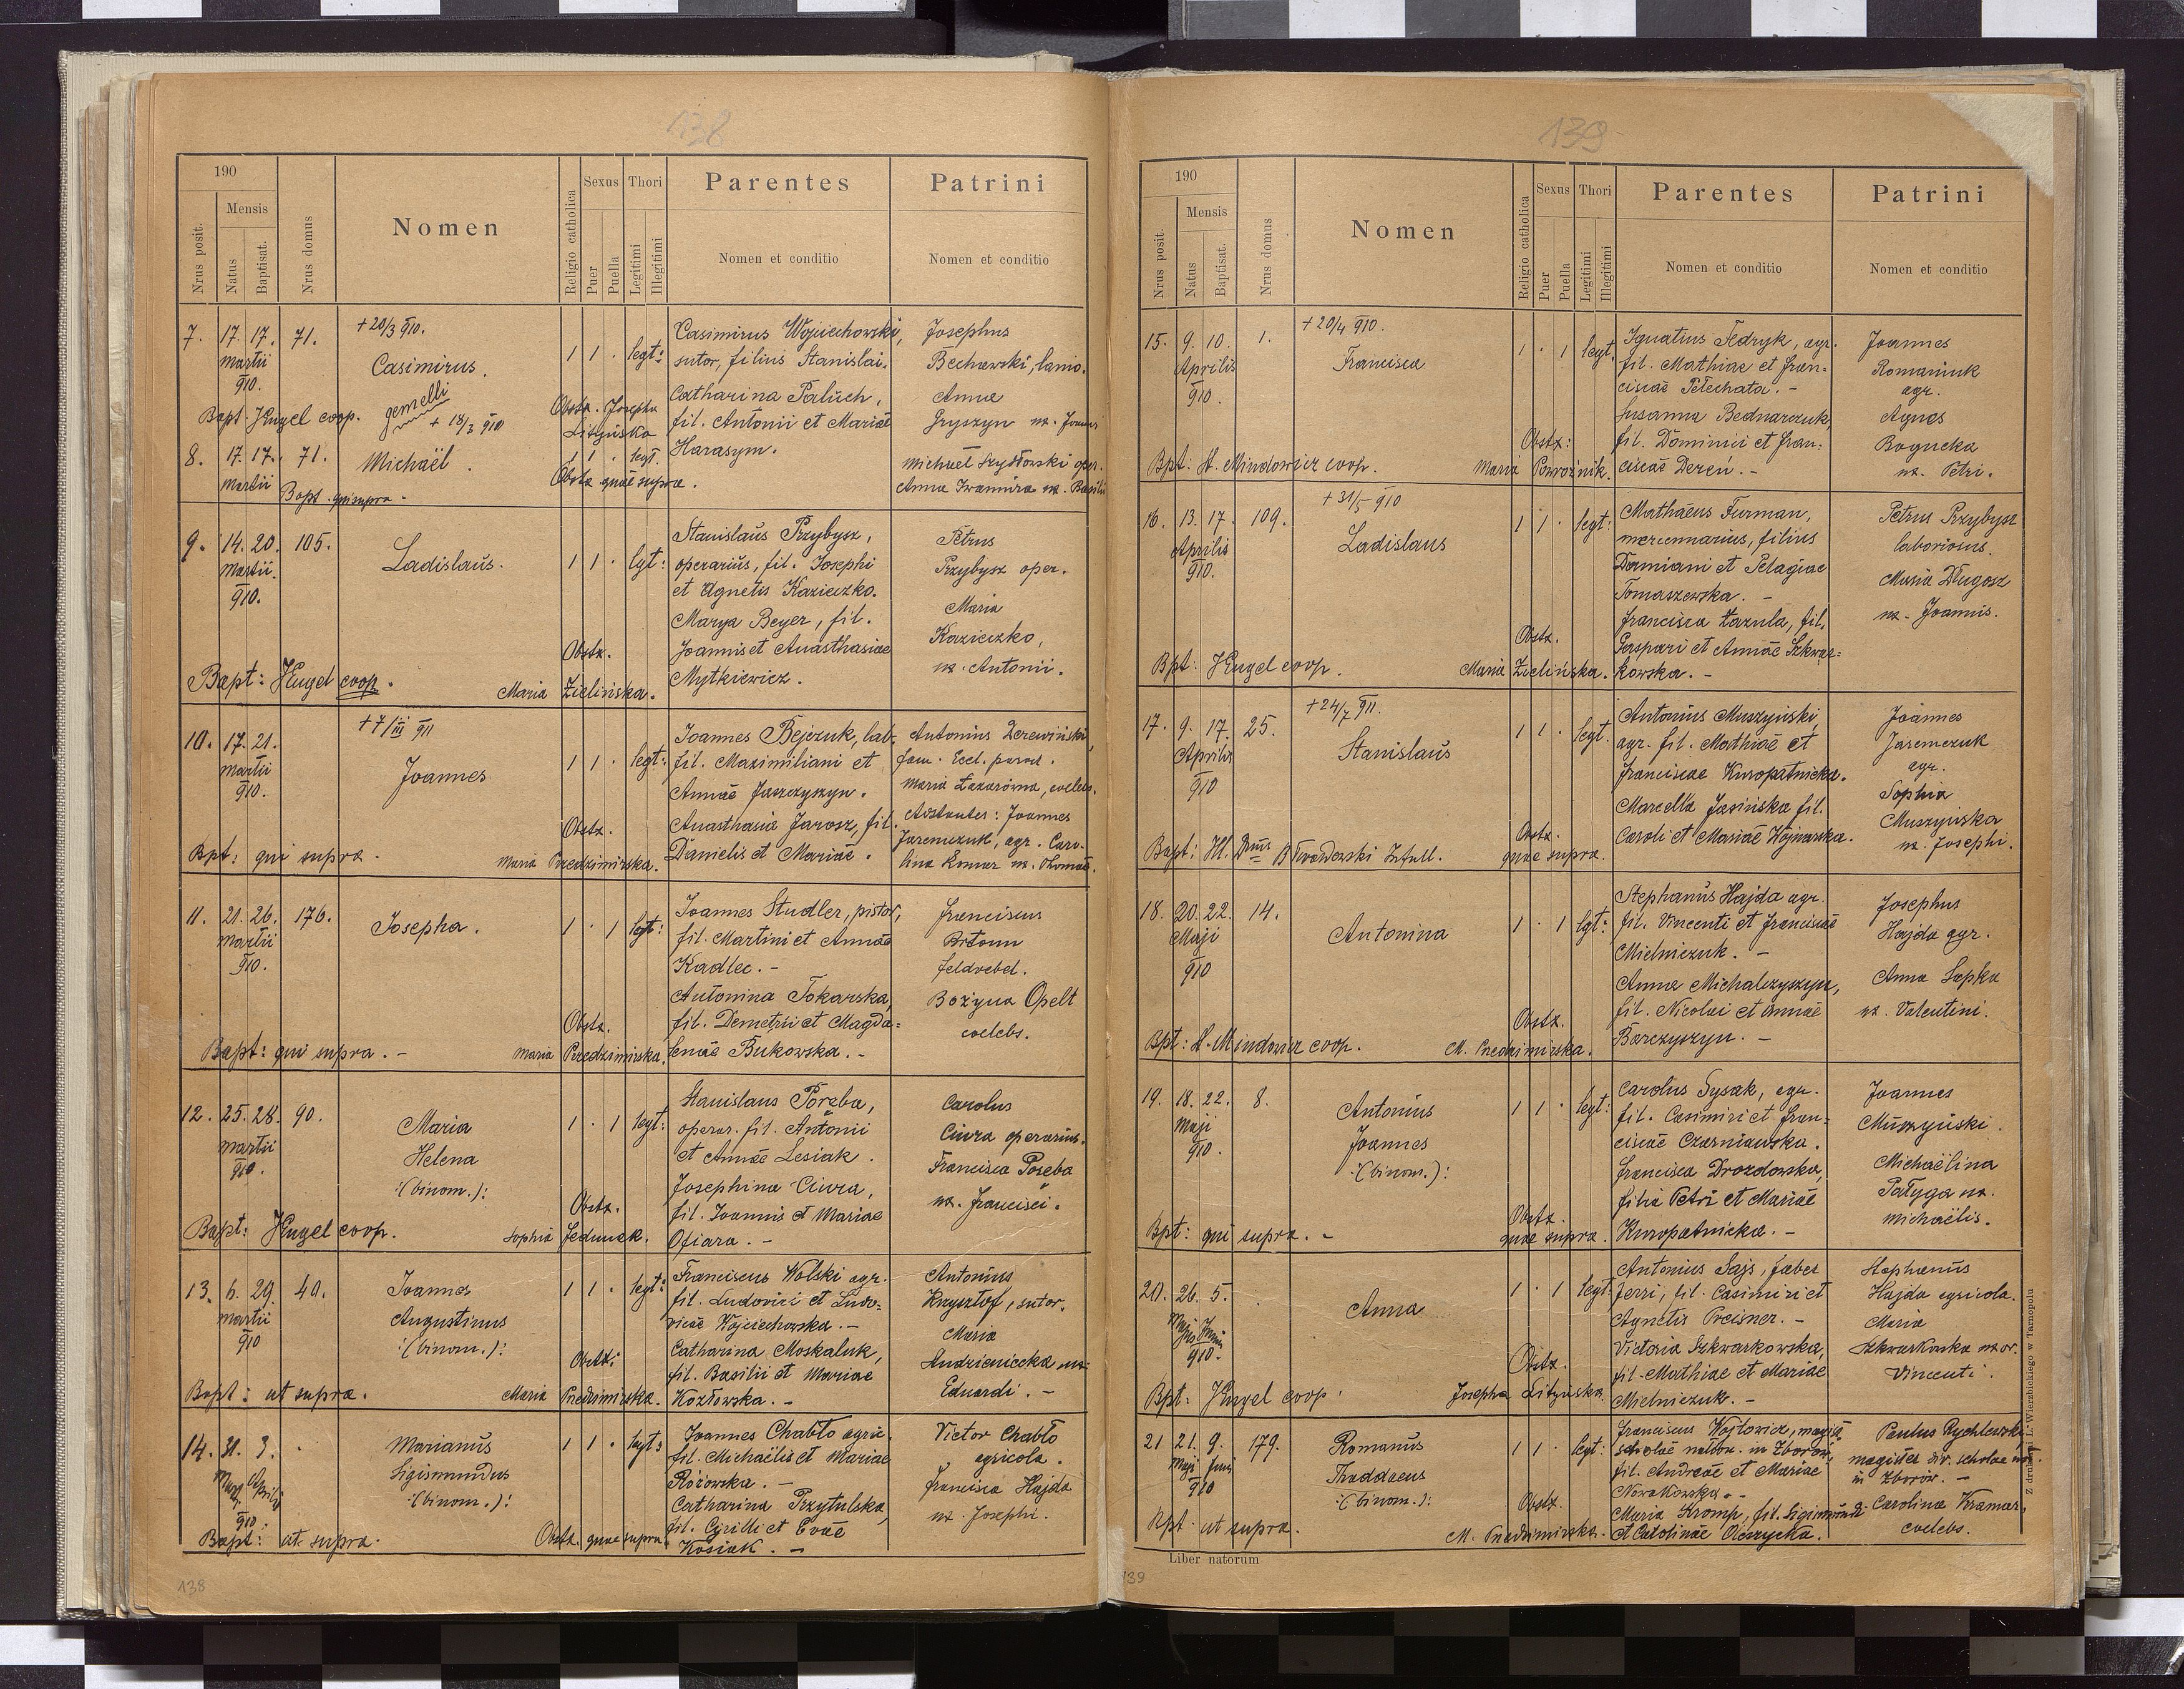 138
190
Nrus posit.
Mensis
Natus
Baptisat.
Nrus domus
Nomen
Religio catholica
Sexus
Puer
Puella
Thori
Legitimi
Illegitimi
Parentes
Nomen et conditio
Patrini
Nomen et conditio
7. 17. 17. 71.
Martii
910.
+ 20/3 910.
Casimirus.
1 1 . legt:
Casimirus Wojciechowski,
sutor, filius Stanislai.
Catharina Paluch,
fil. Antonii et Mariae
Harasym.
Josephus
Bechowski, lanio.
Anna
Gryszyn ux. Joannis
Bapt. Kugel coop.
gemelli
+ 18/3 910
Obstx. Josepha
Lityńska
8. 17. 17. 71.
Martii
Michaël.
1 1 . legt.
Obstx quae supra.
Michael Szydłowski oper.
Anna Iwanira ux. Basilii
Bapt. qui supra.
9. 14. 20. 105.
Martii.
910.
Ladislaus.
1 1 . lgt:
Stanislaus Przybysz,
operarius, fil. Josephi
et Agnetis Kazieczko.
Marya Beyer, fil.
Joannis et Anasthasiae
Mytkiewicz.
Petrus
Przybysz oper.
Maria
Kazieczko,
ux. Antonii.
Obstx.
Bapt: Kugel coop.
Maria Zielińska.
10. 17. 21.
Martii
910.
+ 7/III 911
Joannes
1 1 . legt:
Joannes Bejczuk, lab.
fil. Maximiliani et
Annae Jaszczyszyn.
Anasthasia Jarosz, fil.
Danielis et Mariae.
Antonius Derewiński,
fam. Eccl. paroch.
Maria Lazarówna, coelebs.
Adstantes: Joannes
Jaremczuk, agr. Caro-
lina Komar ux. Thomae.
Obstx.
Bpt: qui supra.
Maria Przedzimirska.
11. 21. 26. 176.
Martii
910.
Josepha.
1 . 1 legt:
Joannes Studler, pistor,
fil. Martini et Annae
Kadlec. -
Antonina Tokarska,
fil. Demetrii et Magda=
lenae Bukowska. -
Franciscus
Brtoun
feldvebel.
Bożyna Opelt
coelebs.
Obstx.
Bapt: qui supra. -
Maria Przedzimirska.
12. 25. 28. 90.
Martii
910.
Maria
Helena
:(binom.):
1 . 1 legt:
Stanislaus Poręba,
operar. fil. Antonii
et Annae Lesiak.
Josephina Ciura,
fil. Joannis et Mariae
Ofiara. -
Carolus
Ciura operarius.
Francisca Poręba
ux. Francisci.
Obstx.
Bapt: Kugel coop.
Sophia Fedunek.
13. 6. 29. 40.
Martii
910
Joannes
Augustinus
:(binom.):
1 1 . legt:
Franciscus Wolski agr.
fil. Ludovici et Ludo-
vicae Wojciechowska. -
Catharina Moskaluk,
fil. Basilii et Mariae
Kozłowska. -
Antonius
Krysztof, sutor.
Maria
Andzieniecka ux.
Eduardi. -
Obstx:
Bapt: ut supra.
Maria Przedzimirska.
14. 31. 3. .
Marti Aprilis
910.
Marianus
Sigismundus
:(binom.):
1 1 . legt:
Joannes Chabło agric.
fil. Michaëlis et Mariae
Różowska. -
Catharina Przytulska,
fil. Cyrilli et Evae
Kosiak. -
Victor Chabło
agricola.
Francisca Hajda
ux. Josephi.
Bapt: ut supra.
Obstx. quae supra.
138
139
190
Nrus posit.
Mensis
Natus
Baptisat.
Nrus domus
Nomen
Religio catholica
Sexus
Puer
Puella
Thori
Legitimi
Illegitimi
Parentes
Nomen et conditio
Patrini
Nomen et conditio
15. 9. 10. 1.
Aprilis
910.
+ 20/4 910.
Francisca
1 . 1 legt.
Ignatius Fedryk, agr.
fil. Mathiae et Fran=
ciscae Petechata. -
Susanna Bednarczuk,
fil. Dominici et Fran=
ciscae Dereń. -
Joannes
Romaniuk
agr.
Agnes
Bogucka
ux. Petri.
Obstx:
Bpt: A. Mindowicz coop.
Maria Powoźnik.
16. 13. 17. 109.
Aprilis
910.
+ 31/5 910
Ladislaus
1 1 . legt:
Mathaeus Furman,
mercennarius, filius
Damiani et Pelagiae
Tomaszewska. -
Francisca Łazula, fil.
Gaspari et Annae Szkwar=
kowska. -
Petrus Przybysz
laboriosus.
Maria Długosz
ux. Joannis.
Obstx.
Bpt: Kugel coop.
Maria Zielińska.
17. 9. 17. 25.
Aprilis
910
+ 24/7 911.
Stanislaus
1 1 . legt.
Antonius Muszyński
agr. fil. Mathiae et
Franciscae Kuropatnicka.
Marcella Jasińska fil.
Caroli et Mariae Wojnarska.
Joannes
Jaremczuk
agr.
Sophia
Muszyńska
ux. Josephi.
Obstx.
quae supra.
18. 20. 22. 14.
Maji
910
Antonina
1 . 1 lgt:
Stephanus Hajda agr.
fil. Vincenti et Franciscae
Mielniczuk. -
Anna Michalczyszyn,
fil. Nicolai et Annae
Barczyszyn. -
Josephus
Hajda agr.
Anna Łapka
ux. Valentini.
Obstx.
Bpt: A. Mindowicz coop.
M. Przedzimirska.
19. 18. 22. 8.
Maji
910.
Antonius
Joannes
:(binom.):
1 1 . legt:
Carolus Sysak, agr.
fil. Casimiri et Fran=
ciscae Czerniawska.
Francisca Drozdowska,
filia Petri et Mariae
Kuropatnicka. -
Joannes
Muszyński.
Michaëlina
Pałyga ux.
Michaëlis.
Obstx.
quae supra.
Bpt: qui supra. -
20. 26. 5. .
Maji Junii
910.
Anna
1 . 1 legt.
Antonius Sajs, faber
ferri, fil. Casimiri et
Agnetis Preisner. -
Victoria Szkwarkowska,
fil. Mathiae et Mariae
Mielniczuk. -
Stephanus
Hajda agricola.
Maria
Szkwarkowska uxor.
Vincenti.
Obstx.
Bpt: Kugel coop.
Josepha Lityńska.
21 21. 9. 179.
Maji Junii
910
Romanus
Thaddaeus
:(binom.):
1 1 . legt:
Franciscus Wojtowicz, magist.
scholae in Zborów,
fil. Andreae et Mariae
Nowakowska. -
Maria Kromp, fil. Sigismundi
et Carolinae Olszycka.
Paulus Rychlewski
magister dir. scholae
in Zborów. -
Carolina Kramar,
coelebs.
Obstx.
Bpt. ut supra.
M. Przedzimirska.
Liber natorum
Z drukarni L. Wierzbickiego w Tarnopolu
139